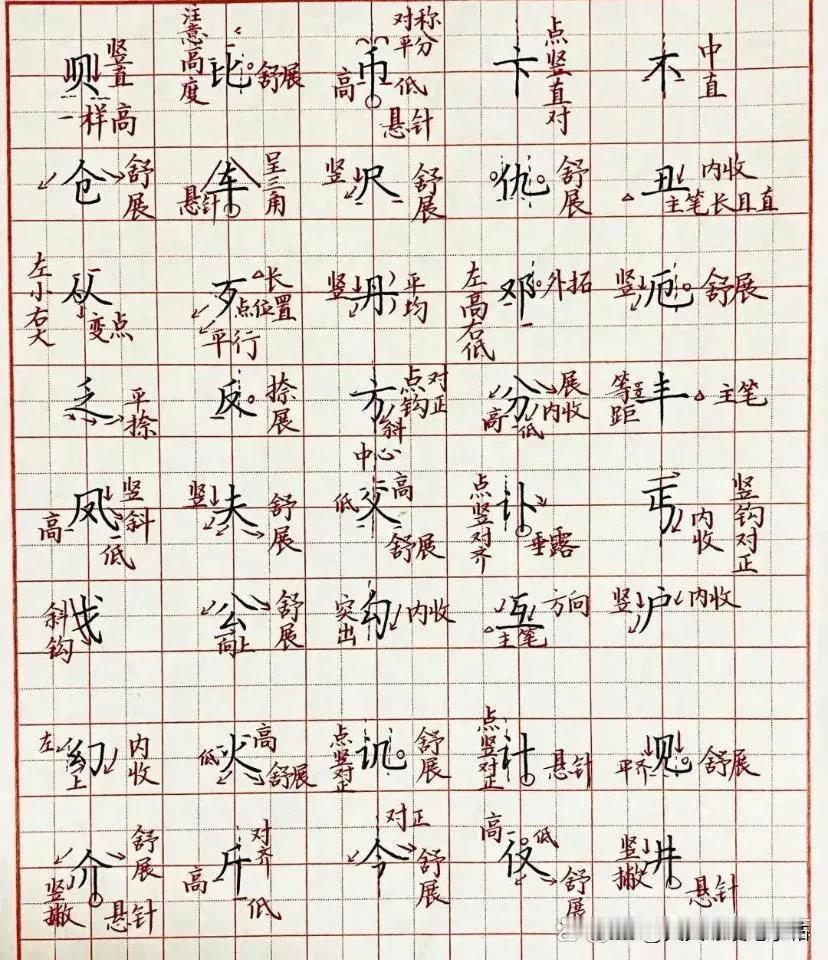 呗 竖直 一样高 比 注意高度 舒展 币 对称 平分 高 低 悬针 卞 点竖直对 不 中直
仓 舒展 车 呈三角 悬针 尺 竖 舒展 仇 舒展 丑 内收 主笔长且直
从 左小右大 变点 歹 长 点位置 平行 丹 竖 平均 邓 左高右低 外拓 厄 竖 舒展
乏 平捺 反 捺展 方 点钩对正 斜 中心 分 展 高 内收 低 丰 等距 主笔
凤 竖斜 高 低 夫 竖 舒展 交 低 高 舒展 讣 点竖对齐 垂露 丐 竖钩对正 内收
戈 斜钩 公 舒展 向上 勾 突出 内收 互 方向 主笔 户 竖 内收
幻 左 上 内收 火 低 高 舒展 讥 点竖对正 舒展 计 点竖对正 悬针 见 平齐 舒展
介 舒展 竖撇 悬针 斤 对齐 高 低 今 对正 舒展 仅 高 低 舒展 井 竖撇 悬针